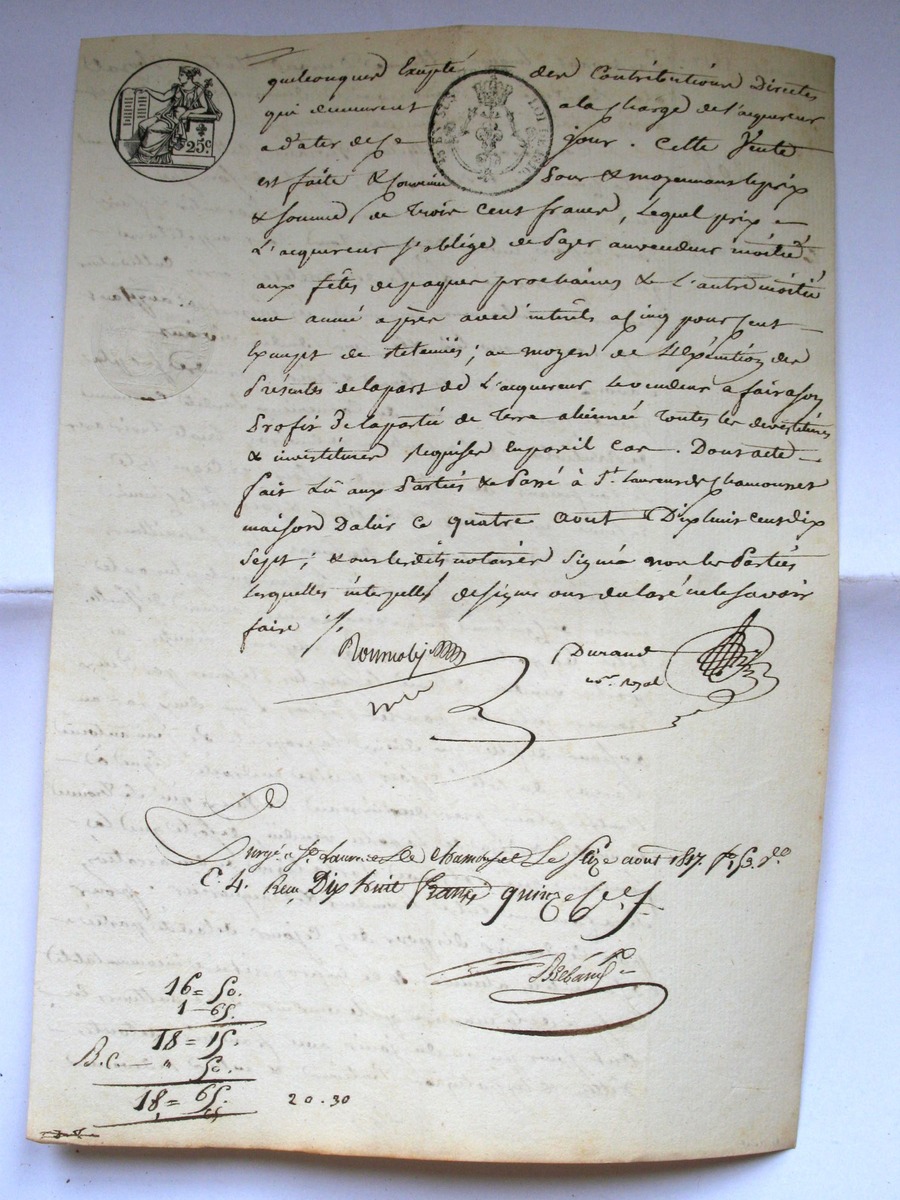 quelconques Exepté des Contributions Directes
qui demeurent a la charge de l'acquereur
a dater de ce jour. Cette Vente
est faite & Pour & moyennant le prix
& somme de trois cent francs, Lequel prix
L'acquereur s'oblige de Payer au vendeur moitié
aux fêtes de paques prochaines & L'autre moitié
une année après avec intérêts a cinq pour cent
Exempt de retenües; au moyen de des
Présentes de la part de L'acquereur Le vendeur a fait a son
Profit de la partie de Terre aliennée toutes les devestitures
& investitures requises en pareil cas. Dont acte
fait Lû aux Parties & Passé à St. Laurent de Chamousset
maison Dalin ce quatre aout Dix huit cent dix
sept; & ont lesdits notaires Signé non les Parties
lesquelles interpellés de signer ont declaré ne le savoir
faire
Durand
not. royal
25c.
a St. Laurent de chamousset Le Seize aout 1817. fo. 53. Vo.
C. 4. Recu Dix huit francs quinze
16 = 50.
1 - 65.
18 = 15.
50.
18 = 65.
20.30